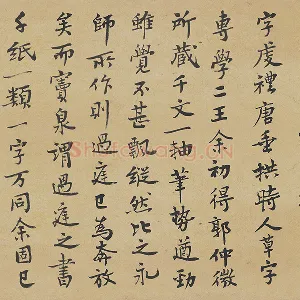 字虔禮唐垂拱時人草字
專學二王余初得郭仲微
所藏千文一軸筆勢遒勁
雖覺不甚飄縱然比之永
師所作則過庭已為奔放
矣而竇泉謂過庭之書
千紙一類一字万同余固已